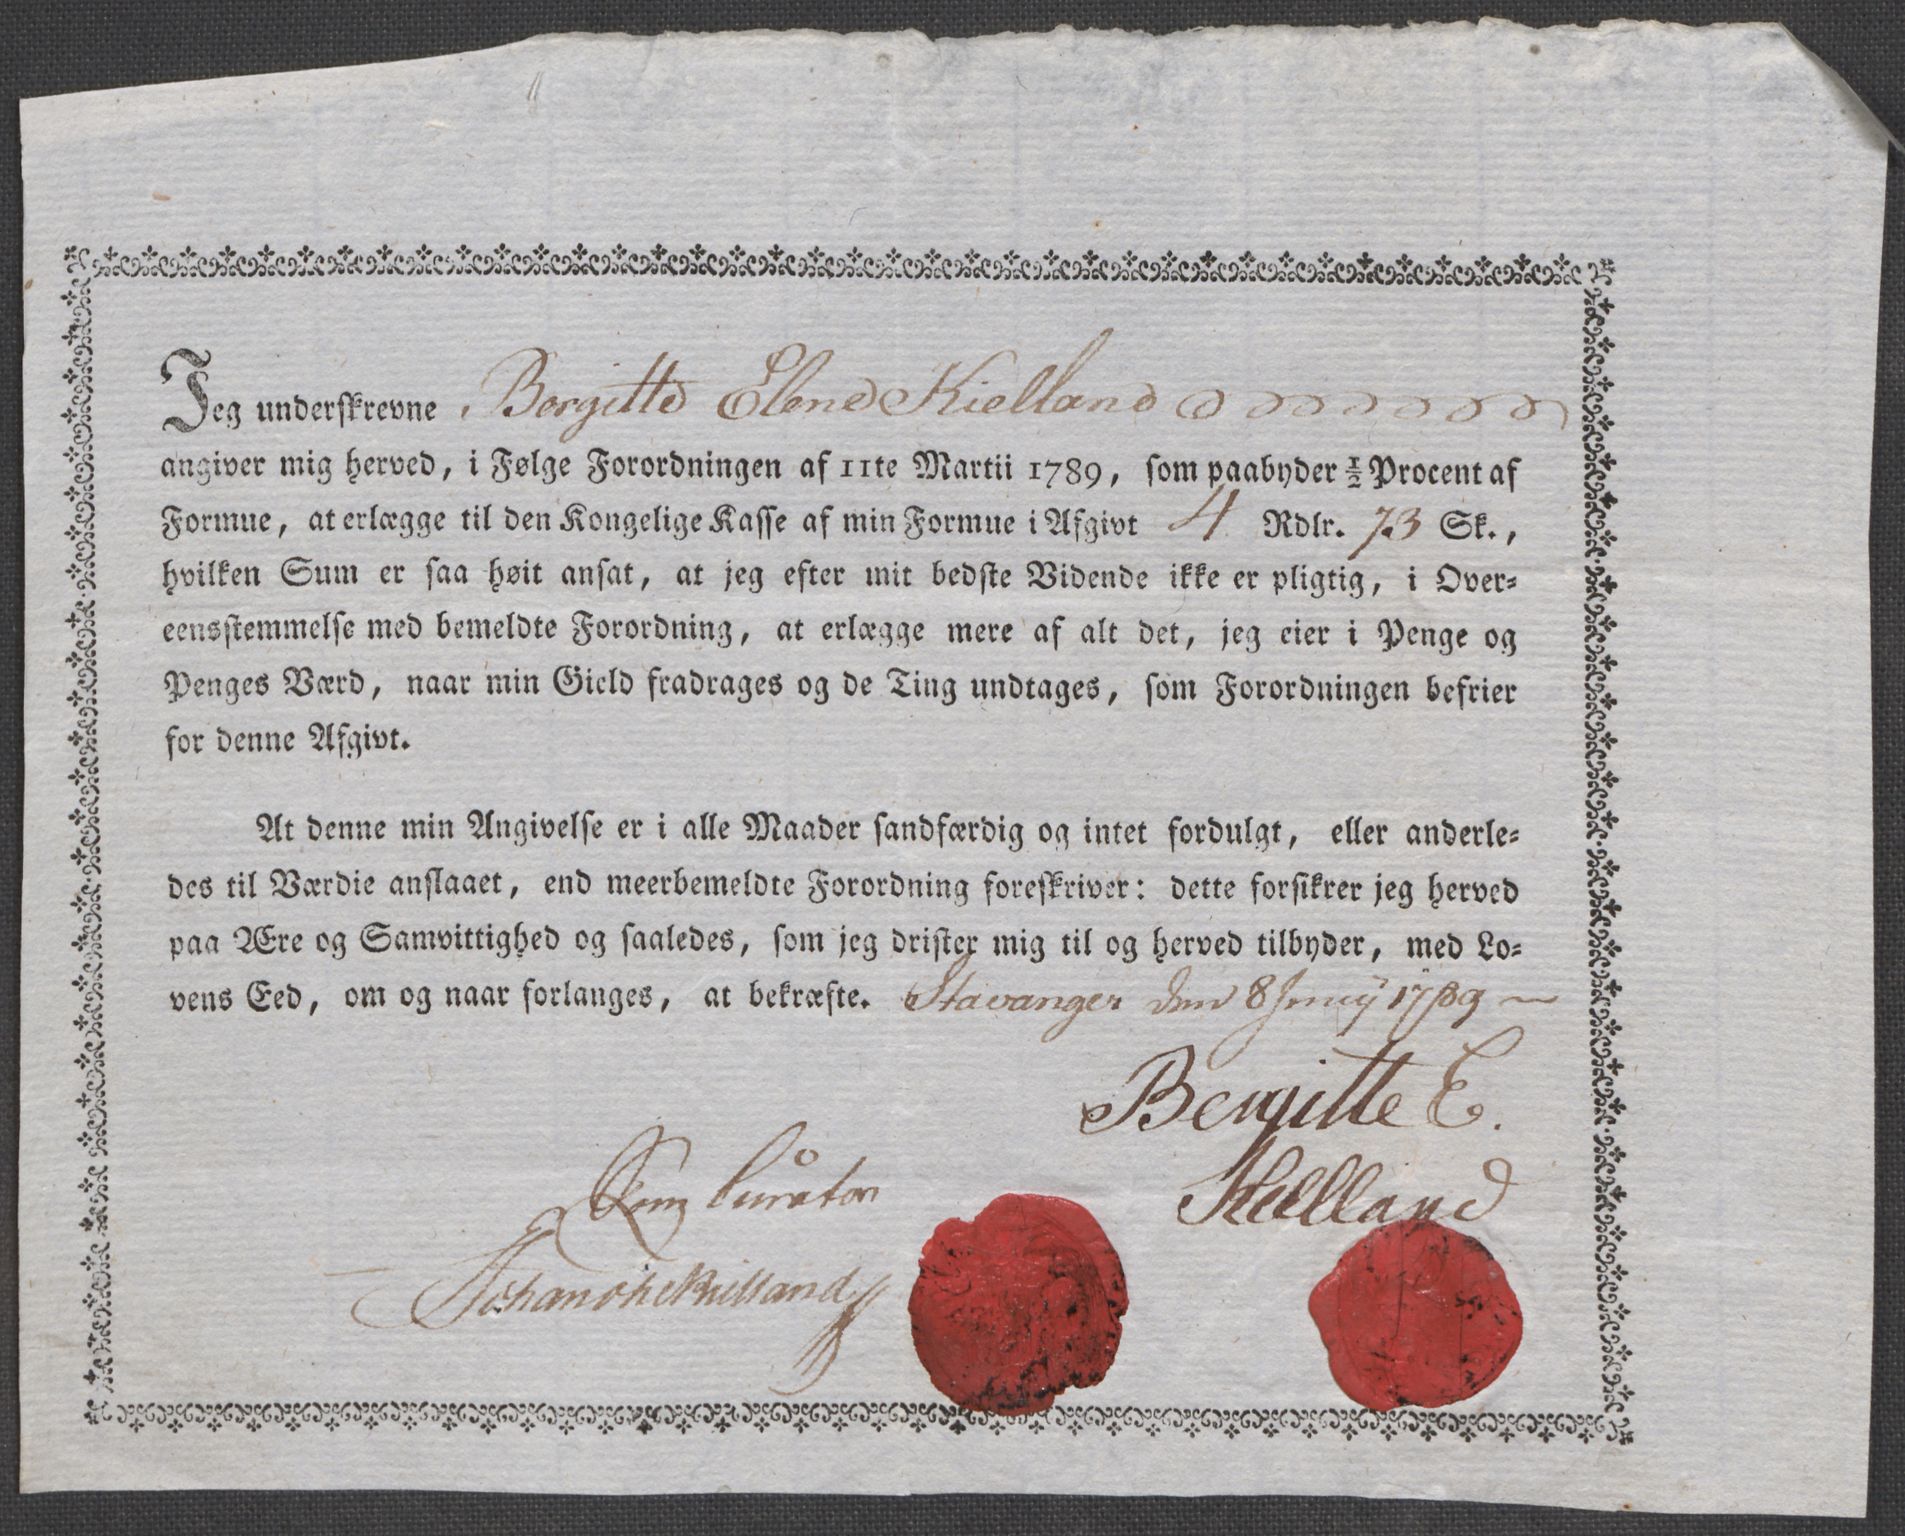 Jeg underskrevne Bergitte Elene Kielland
angiver mig herved, i Følge Forordningen af 11te Martii 1789, som paabyder ½ Procent af
Formue, at erlægge til den Kongelige Kasse af min Formue i Afgivt 4 Rdlr. 73 Sk.,
hvilken Sum er saa høit ansat, at jeg efter mit bedste Vidende ikke er pligtig, i Over-
eensstemmelse med bemeldte Forordning, at erlægge mere af alt det, jeg eier i Penge og
Penges Værd, naar min Gield fradrages og de Ting undtages, som Forordningen befrier
for denne Afgivt.
At denne min Angivelse er i alle Maader sandfærdig og intet fordulgt, eller anderle-
des til Værdie anslaaet, end meerbemeldte Forordning foreskriver: dette forsikrer jeg herved
paa Ære og Samvittighed og saaledes, som jeg drister mig til og herved tilbyder, med Lo-
vens Eed, om og naar forlanges, at bekræfte. Stavanger den 8 Junij 1789
Bergitte E.
Kielland
Som Curator
Kielland